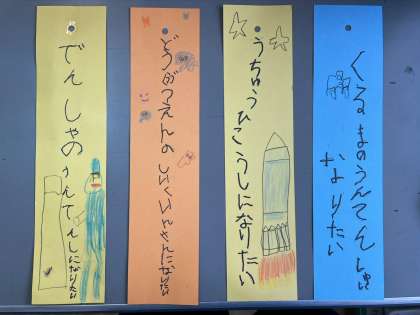 でんしゃのうんてんしになりたい
どうぶつえんのしいくいんさんになりたい
うちゅうひこうしになりたい
くるまのうんてんしゅに
なりたい